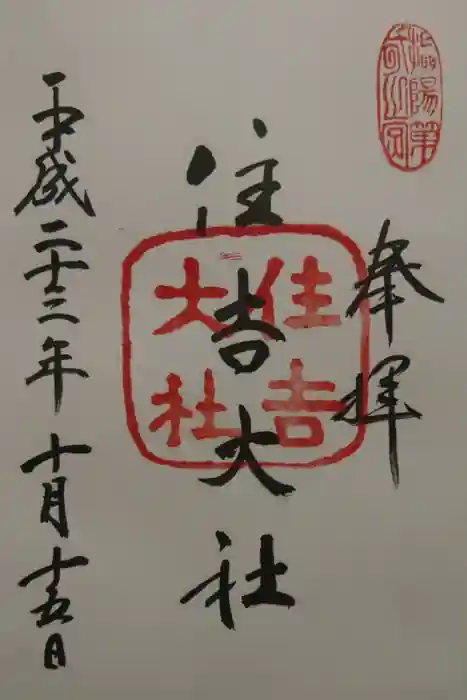 摂陽第一之宮
奉拝
住吉大社
住吉大社
平成二十三年十月十五日